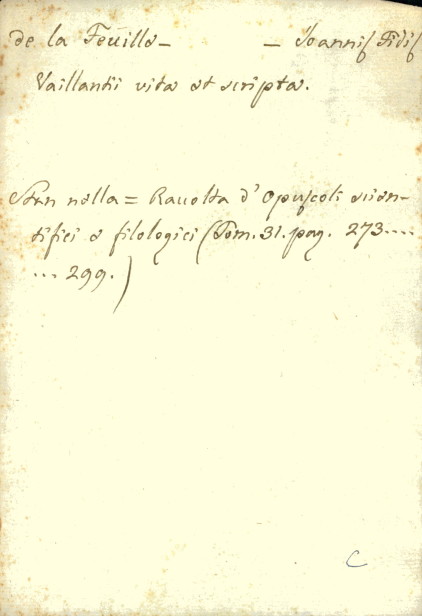 de la Feuille_ _ Ioannis Fidis
Vaillantii vita et scripta.
Sta nella = Raccolta d'Opuscoli scien-
tifici e filologici (Tom. 31. pag. 273....
... 299.)
C